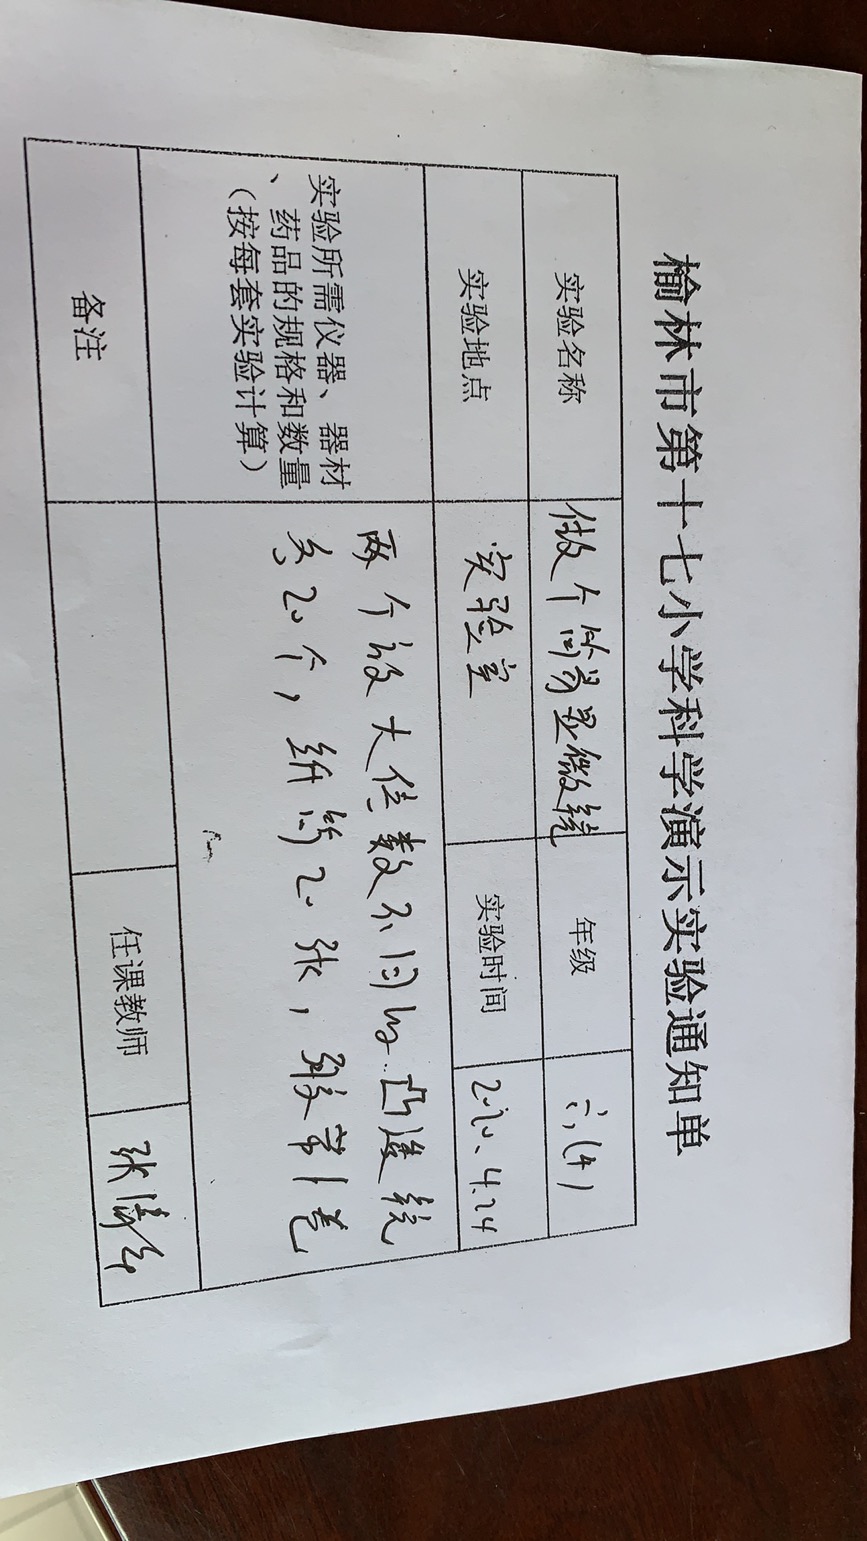 榆林市第十七小学科学演示实验通知单
实验名称 做个简易显微镜 年级 六(4)
实验地点 实验室 实验时间 4.24
实验所需仪器、器材
、药品的规格和数量
(按每套实验计算)
两个放大倍数不同的凸透镜
各20个,纸筒20张,胶带1卷
备注 任课教师 张